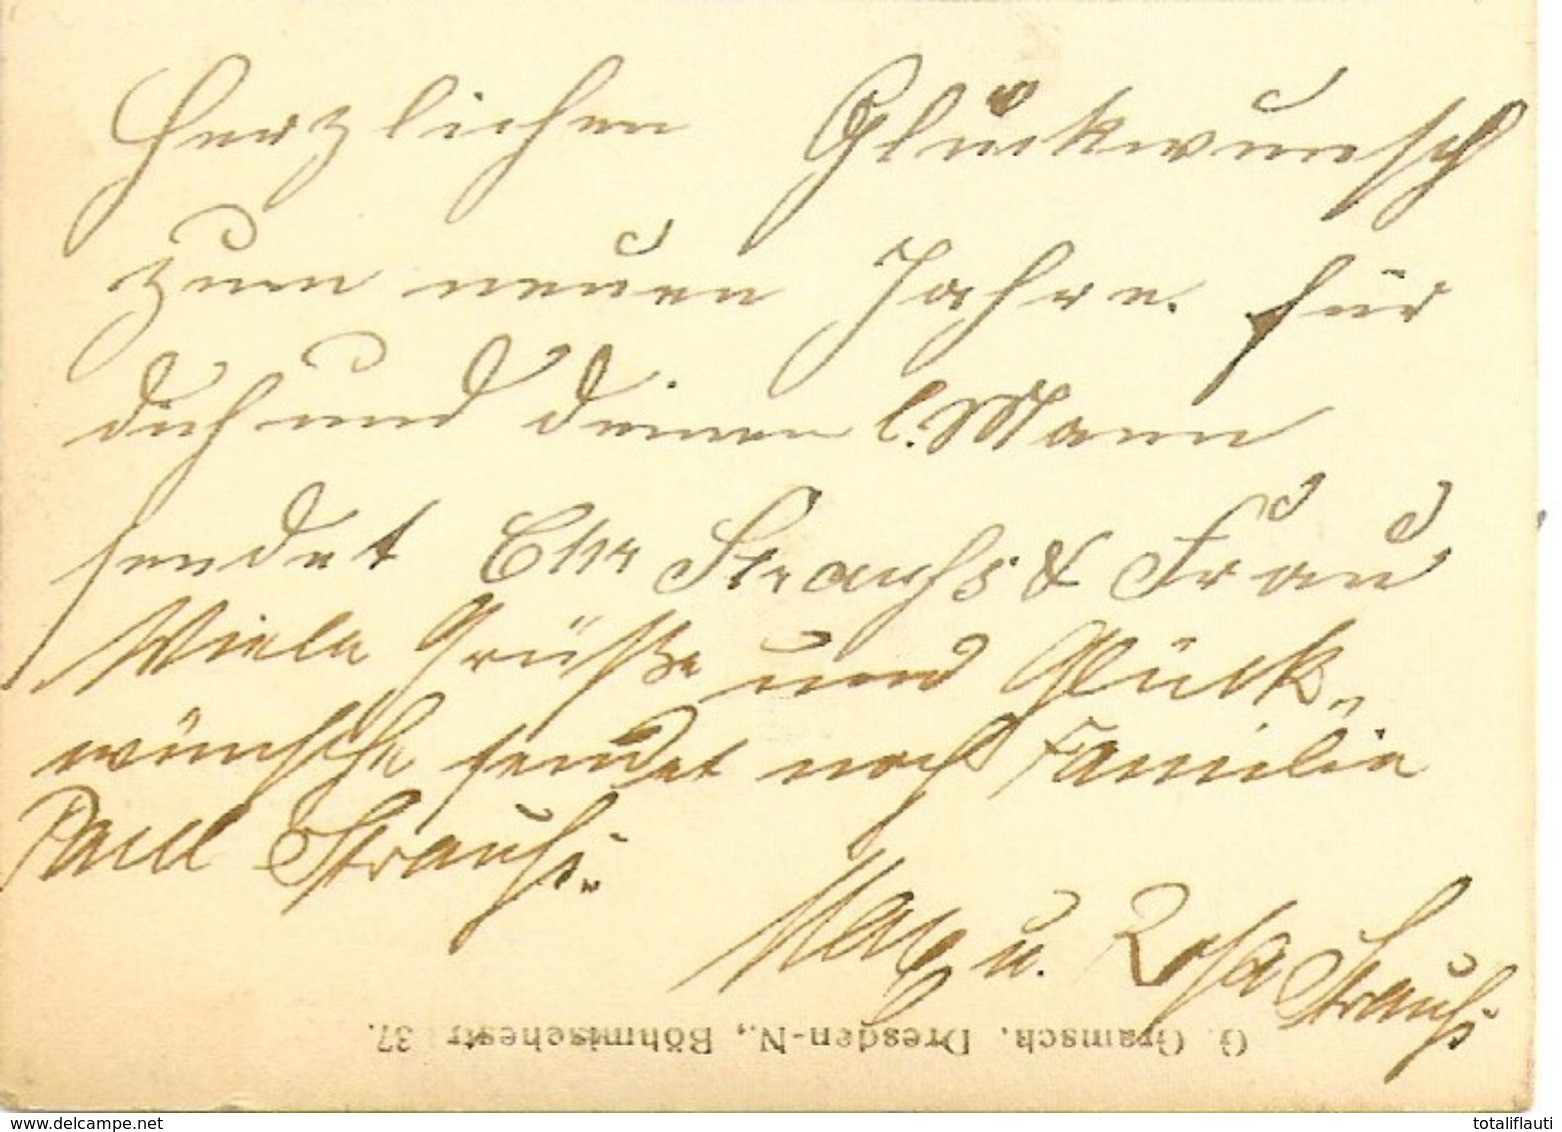 Herzlichen Glückwunsch
zum neuen Jahre. für
dich und deinen l. Mann
sendet Chr Strauhs & Frau
Viele Grüße und Glück-
wünsche sendet noch Familie
Paul Strauhs.
Max u. Rosa Strauhs
G. Gramsch, Dresden-N., Böhmischestr. 37.
www.delcampe.net
totaliflauti